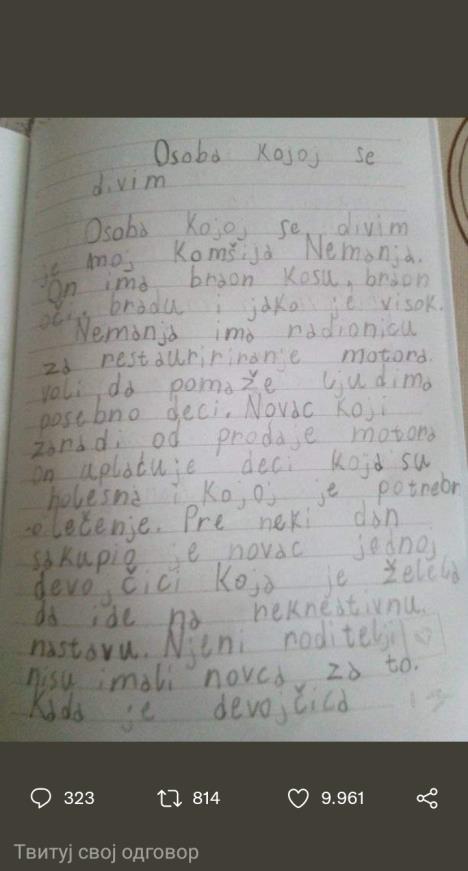 Osoba kojoj se
divim
Osoba kojoj se divim
je moj komšija Nemanja.
On ima braon kosu, braon
oči, bradu i jako je visok.
Nemanja ima radionicu
za restauririranje motora.
voli da pomaže ljudima
posebno deci. Novac koji
zaradi od prodaje motora
on uplatuje deci koja su
bolesna i kojoj je potrebn
-o lečenje. Pre neki dan
sakupio je novac jednoj
devojčici koja je želela
da ide na rekreativnu
nastavu. Njeni roditelji
nisu imali novca za to.
Kada je devojčica
323 814 9.961
Твитуј свој одговор